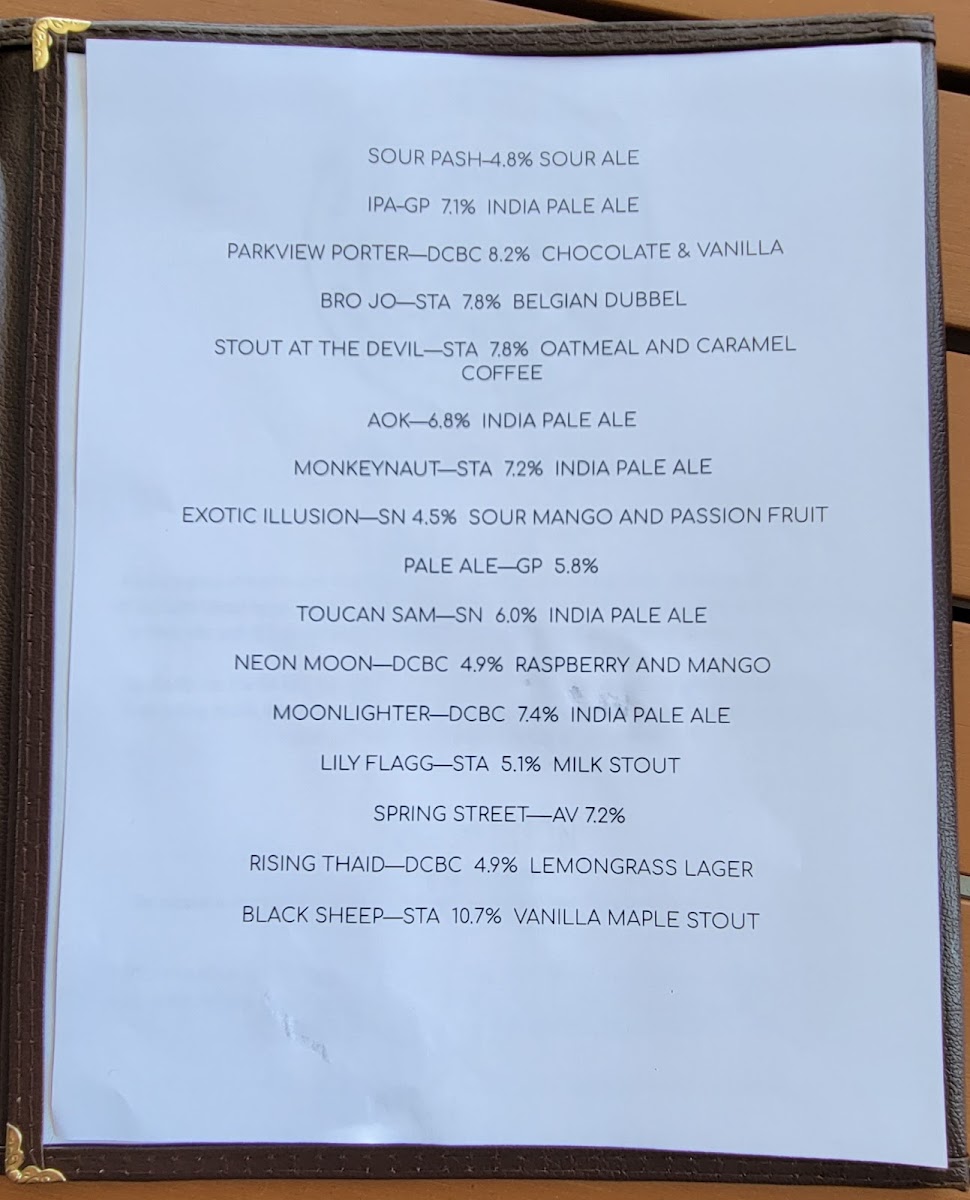 SOUR PASH–4.8% SOUR ALE
IPA-GP 7.1% INDIA PALE ALE
PARKVIEW PORTER—DCBC 8.2% CHOCOLATE & VANILLA
BRO JO—STA 7.8% BELGIAN DUBBEL
STOUT AT THE DEVIL—STA 7.8% OATMEAL AND CARAMEL
COFFEE
AOK—6.8% INDIA PALE ALE
MONKEYNAUT—STA 7.2% INDIA PALE ALE
EXOTIC ILLUSION—SN 4.5% SOUR MANGO AND PASSION FRUIT
PALE ALE—GP 5.8%
TOUCAN SAM—SN 6.0% INDIA PALE ALE
NEON MOON—DCBC 4.9% RASPBERRY AND MANGO
MOONLIGHTER—DCBC 7.4% INDIA PALE ALE
LILY FLAGG—STA 5.1% MILK STOUT
SPRING STREET—AV 7.2%
RISING THAID—DCBC 4.9% LEMONGRASS LAGER
BLACK SHEEP—STA 10.7% VANILLA MAPLE STOUT